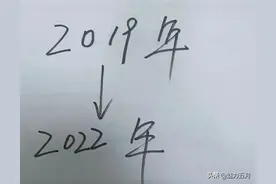 2019年
2022年
头条 @魅力五月